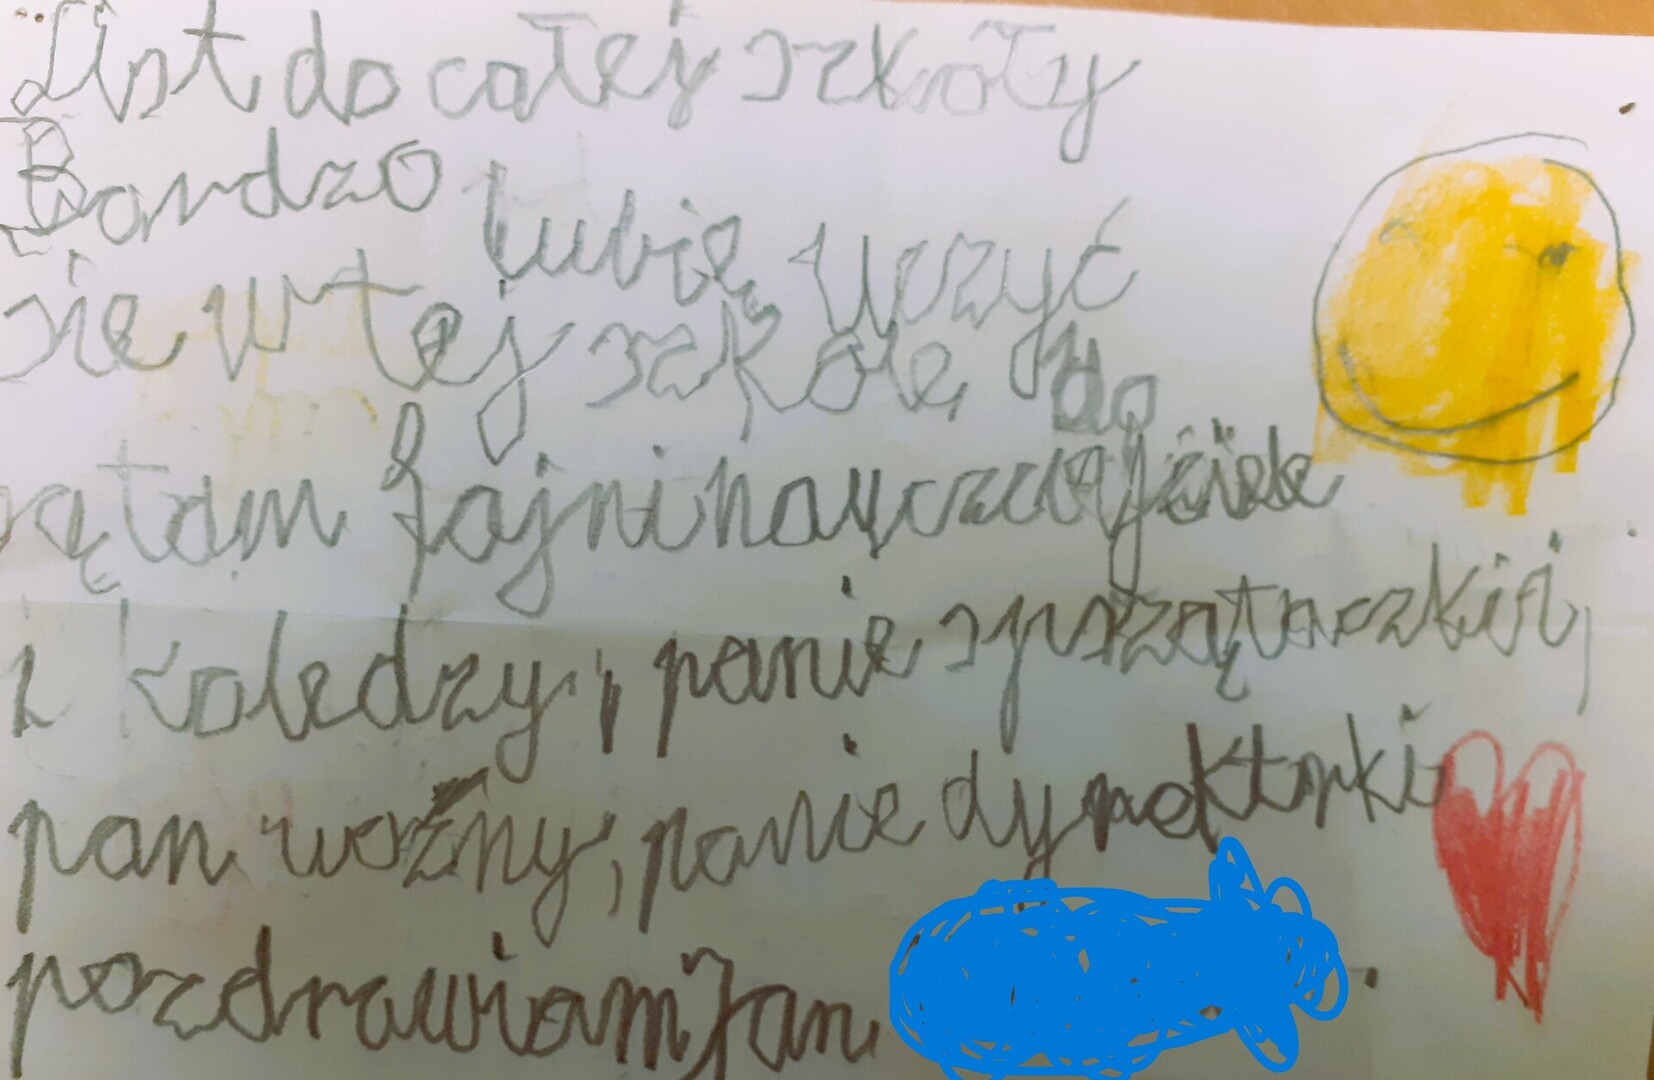 List do całej szkoły
Bardzo lubię uczyć
się w tej szkole, do
są tam fajni nauczyciele
i koledzy, panie sprzątaczki,
pan woźny, panie dyrektorki
pozdrawiam Jan